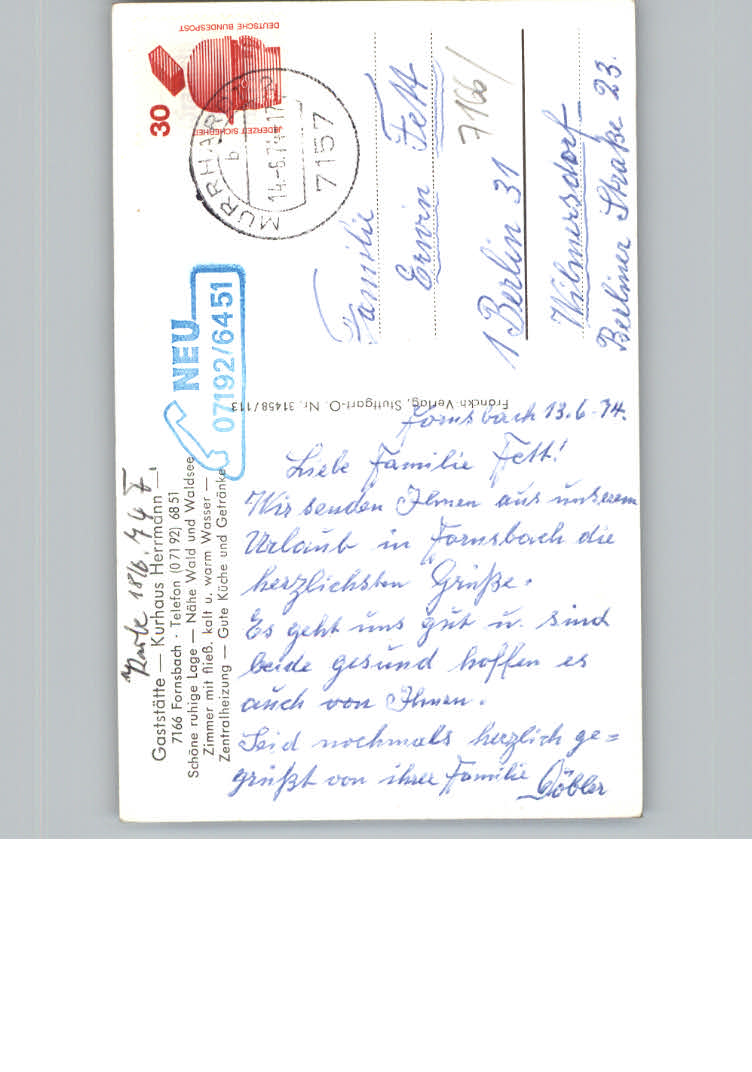 Karte 18/6. 74 F.
Gaststätte — Kurhaus Herrmann
7166 Fornsbach · Telefon (0 71 92) 68 51
Schöne ruhige Lage — Nähe Wald und Waldsee
Zimmer mit fließ. kalt u. warm Wasser —
Zentralheizung — Gute Küche und Getränke
NEU
07192/6451
Franckh-Verlag, Stuttgart-O. Nr. 31458/113
Fornsbach 13.6.74.
Liebe Familie Fett!
Wir senden Ihnen aus unserem
Urlaub in Fornsbach die
herzlichsten Grüße.
Es geht uns gut u. sind
beide gesund hoffen es
auch von Ihnen.
Seid nochmals herzlich ge=
grüßt von ihrer Familie Göbler
DEUTSCHE BUNDESPOST
30
JEDERZEIT SICHERHEIT
MURRHARDT
b
14.-6.74-17
7157
Familie
Erwin Fett
7166/
1 Berlin 31
Wilmersdorf
Berliner Straße 23.